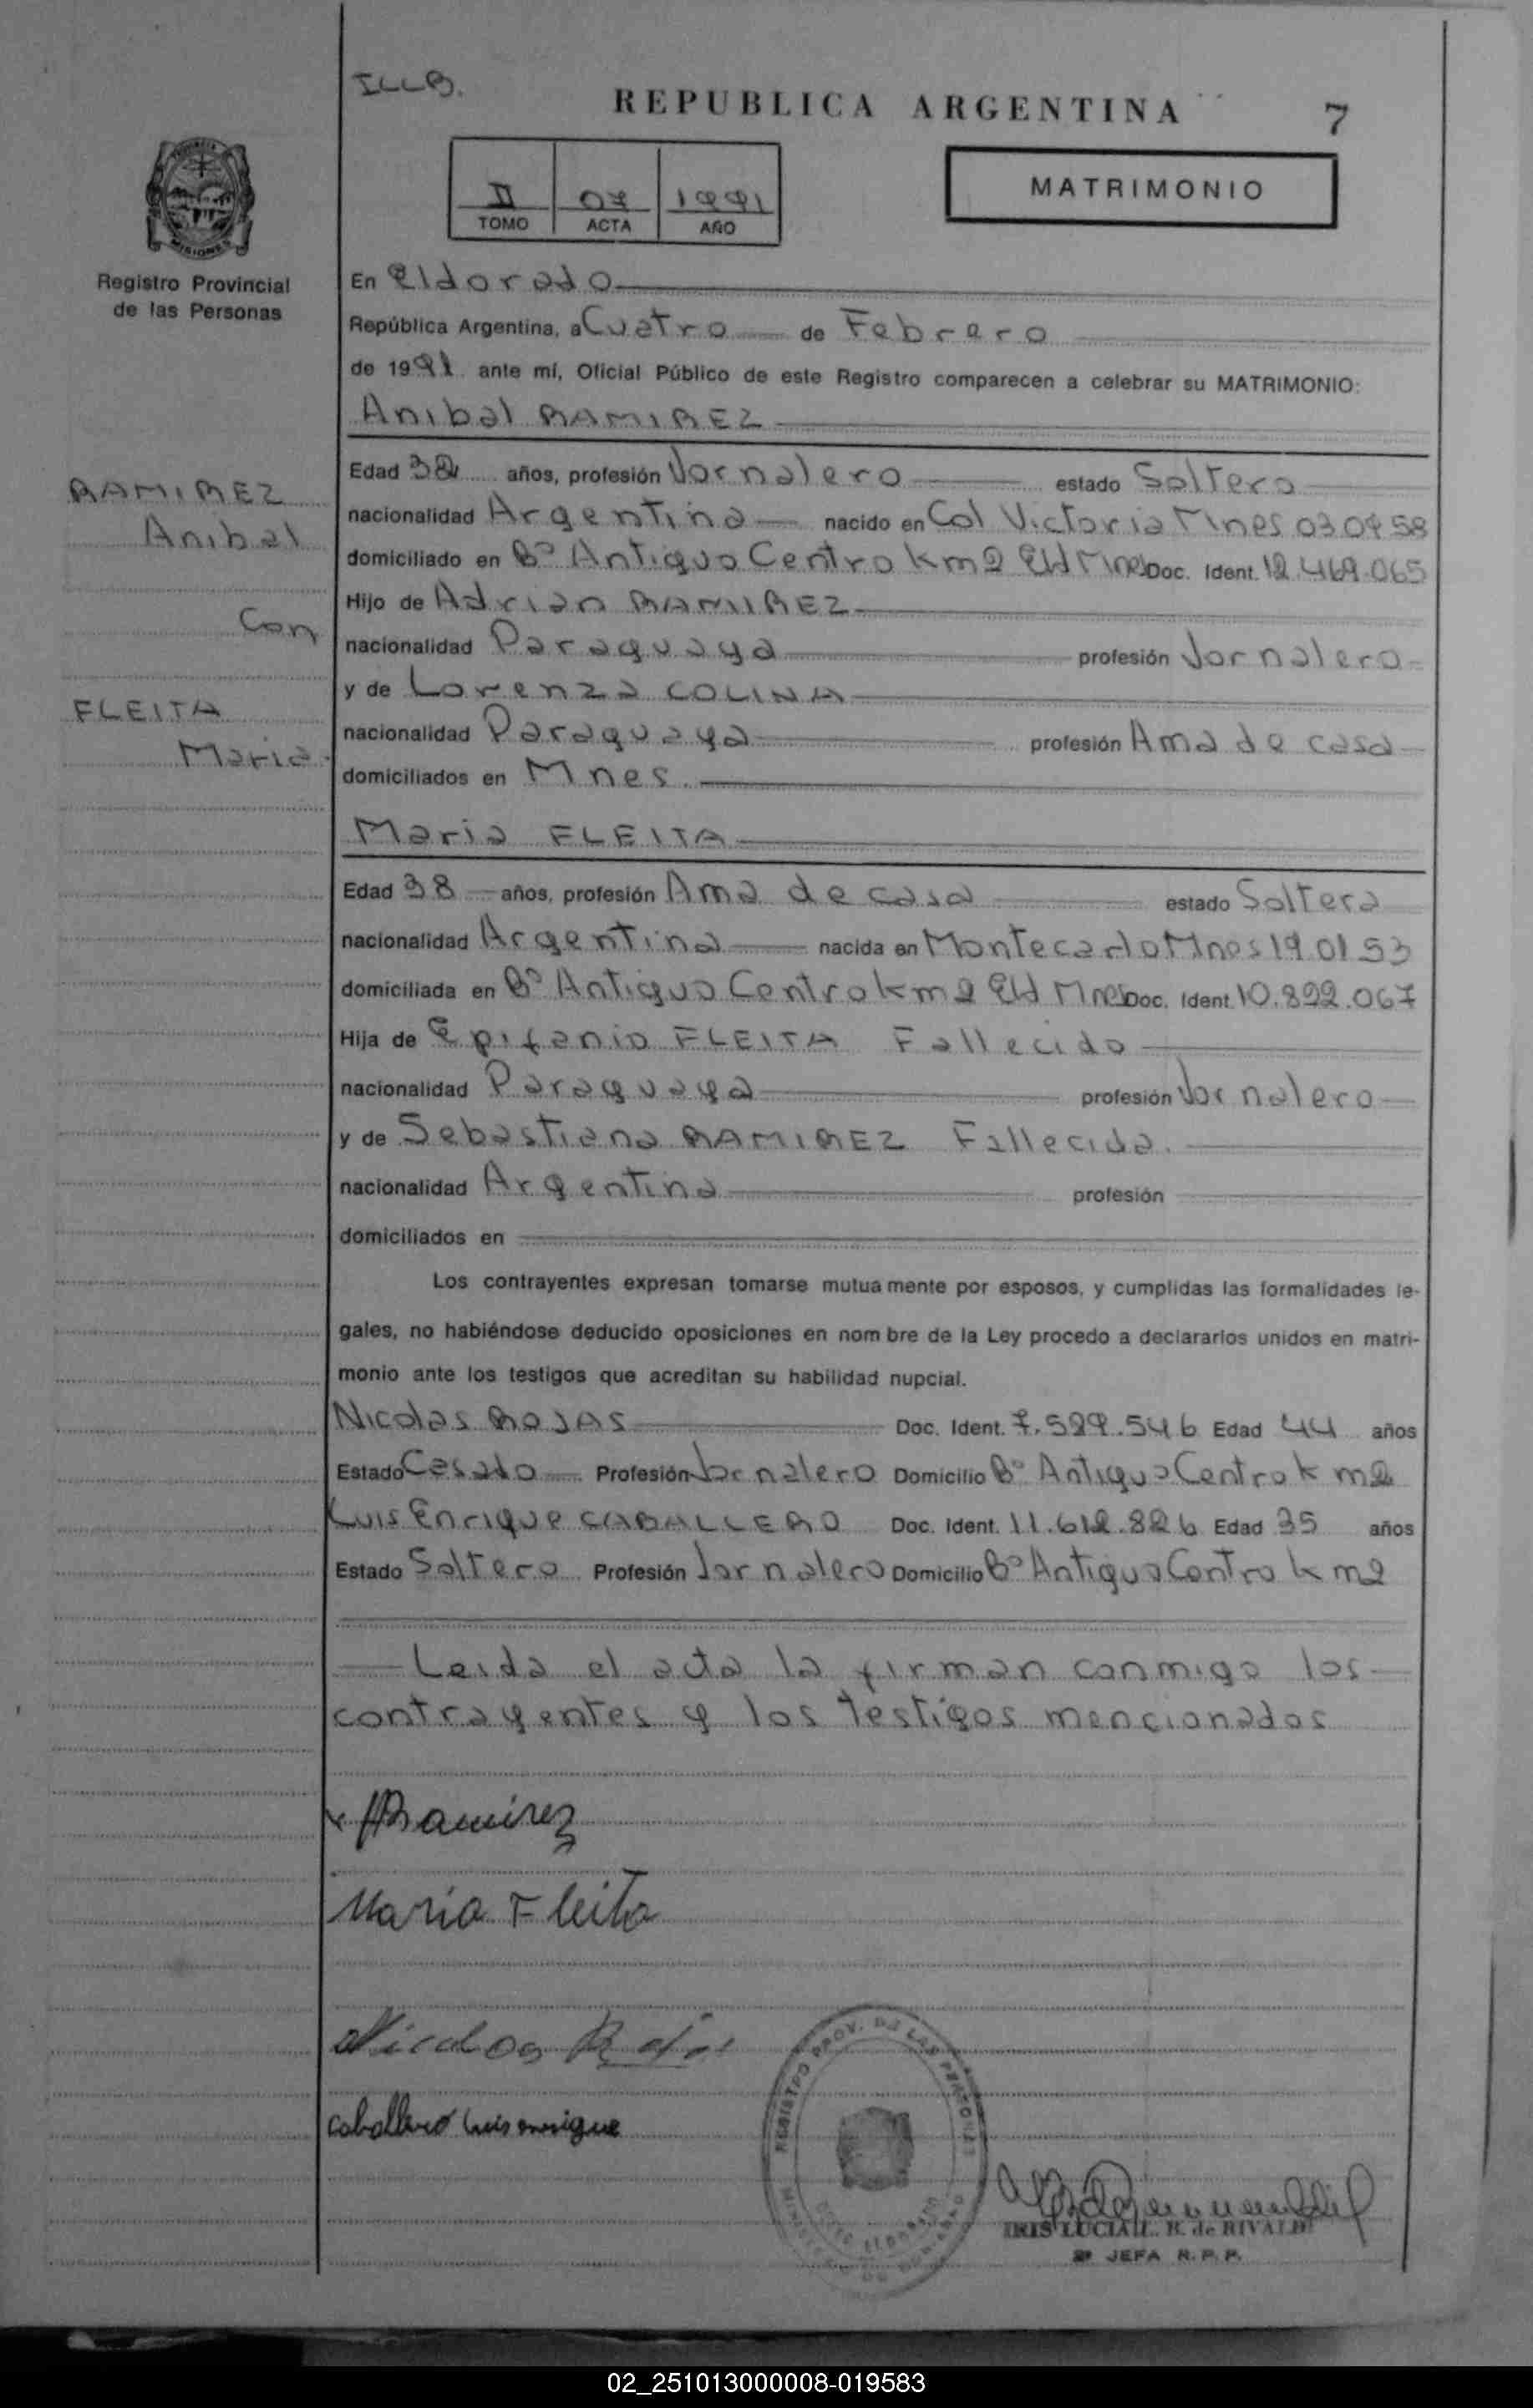 ILLB.
REPUBLICA ARGENTINA 7
II 07 1991
TOMO ACTA AÑO
MATRIMONIO
MISIONES
Registro Provincial
de las Personas
En Eldorado
República Argentina, a Cuatro de Febrero
de 1991 ante mí, Oficial Público de este Registro comparecen a celebrar su MATRIMONIO:
Anibal RAMIREZ
RAMIREZ
Anibal
Con
FLEITA
Maria
Edad 32 años, profesión Jornalero estado Soltero
nacionalidad Argentina nacido en Col Victoria Mnes 03 07 58
domiciliado en Bº Antiguo Centro km 2 Eld Mnes Doc. Ident. 12.469.065
Hijo de Adrian RAMIREZ
nacionalidad Paraguaya profesión Jornalero
y de Lorenza COLINA
nacionalidad Paraguaya profesión Ama de casa
domiciliados en Mnes.
Maria FLEITA
Edad 38 años, profesión Ama de casa estado Soltera
nacionalidad Argentina nacida en Montecarlo Mnes 19 01 53
domiciliada en Bº Antiguo Centro km 2 Eld Mnes Doc. Ident. 10.822.067
Hija de Epifanio FLEITA Fallecido
nacionalidad Paraguaya profesión Jornalero
y de Sebastiana RAMIREZ Fallecida.
nacionalidad Argentina profesión
domiciliados en
Los contrayentes expresan tomarse mutuamente por esposos, y cumplidas las formalidades le-
gales, no habiéndose deducido oposiciones en nombre de la Ley procedo a declararlos unidos en matri-
monio ante los testigos que acreditan su habilidad nupcial.
Nicolas ROJAS Doc. Ident. 7.597.546 Edad 44 años
Estado Casado Profesión Jornalero Domicilio Bº Antiguo Centro km 2
Luis Enrique CABALLERO Doc. Ident. 11.612.826 Edad 35 años
Estado Soltero Profesión Jornalero Domicilio Bº Antiguo Centro km 2
Leida el acta la firman conmigo los
contrayentes y los testigos mencionados
Ramirez
Maria Fleita
Nicolas Rojas
Caballero Luis enrique
REGISTRO PROV. DE LAS PERSONAS
IRIS LUCIA L. B. de RIVALDI
2ª JEFA R.P.P.
02_251013000008-019583